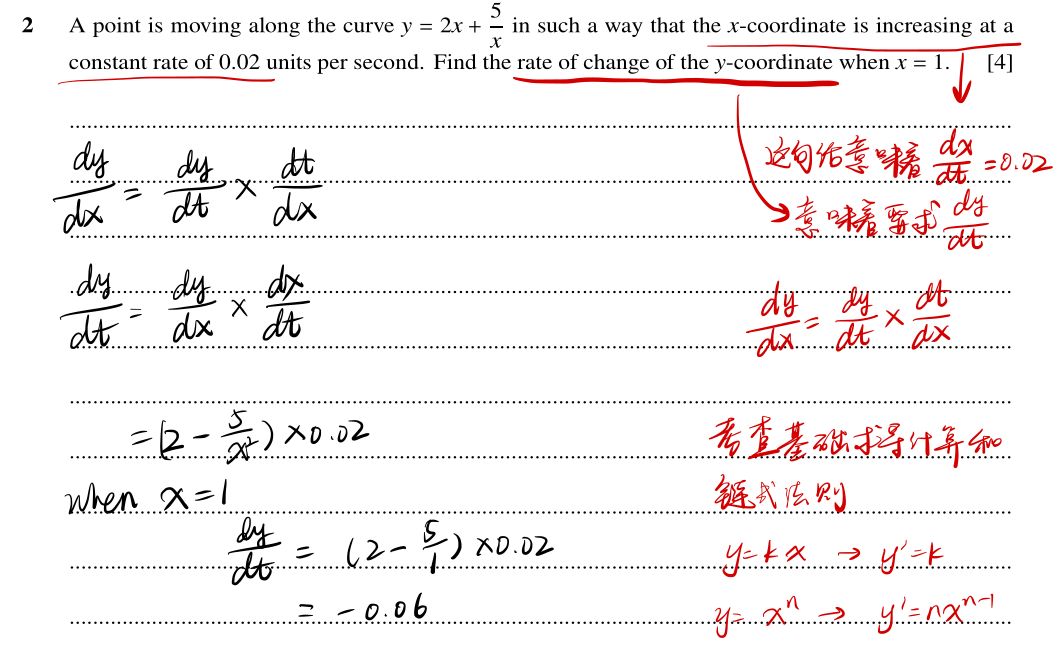 2 A point is moving along the curve y = 2x + 5/x in such a way that the x-coordinate is increasing at a
constant rate of 0.02 units per second. Find the rate of change of the y-coordinate when x = 1. [4]
这句话意味着 dx/dt = 0.02
dy/dx = dy/dt × dt/dx
意味着要求 dy/dt
dy/dt = dy/dx × dx/dt
dy/dx = dy/dt × dt/dx
= (2 - 5/x²) × 0.02
考查基础求导计算和
when x = 1
链式法则
dy/dt = (2 - 5/1) × 0.02
y = kx → y' = k
= -0.06
y = xⁿ → y' = nxⁿ⁻¹